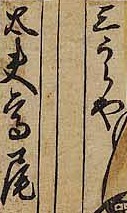 三うらや
太夫高尾